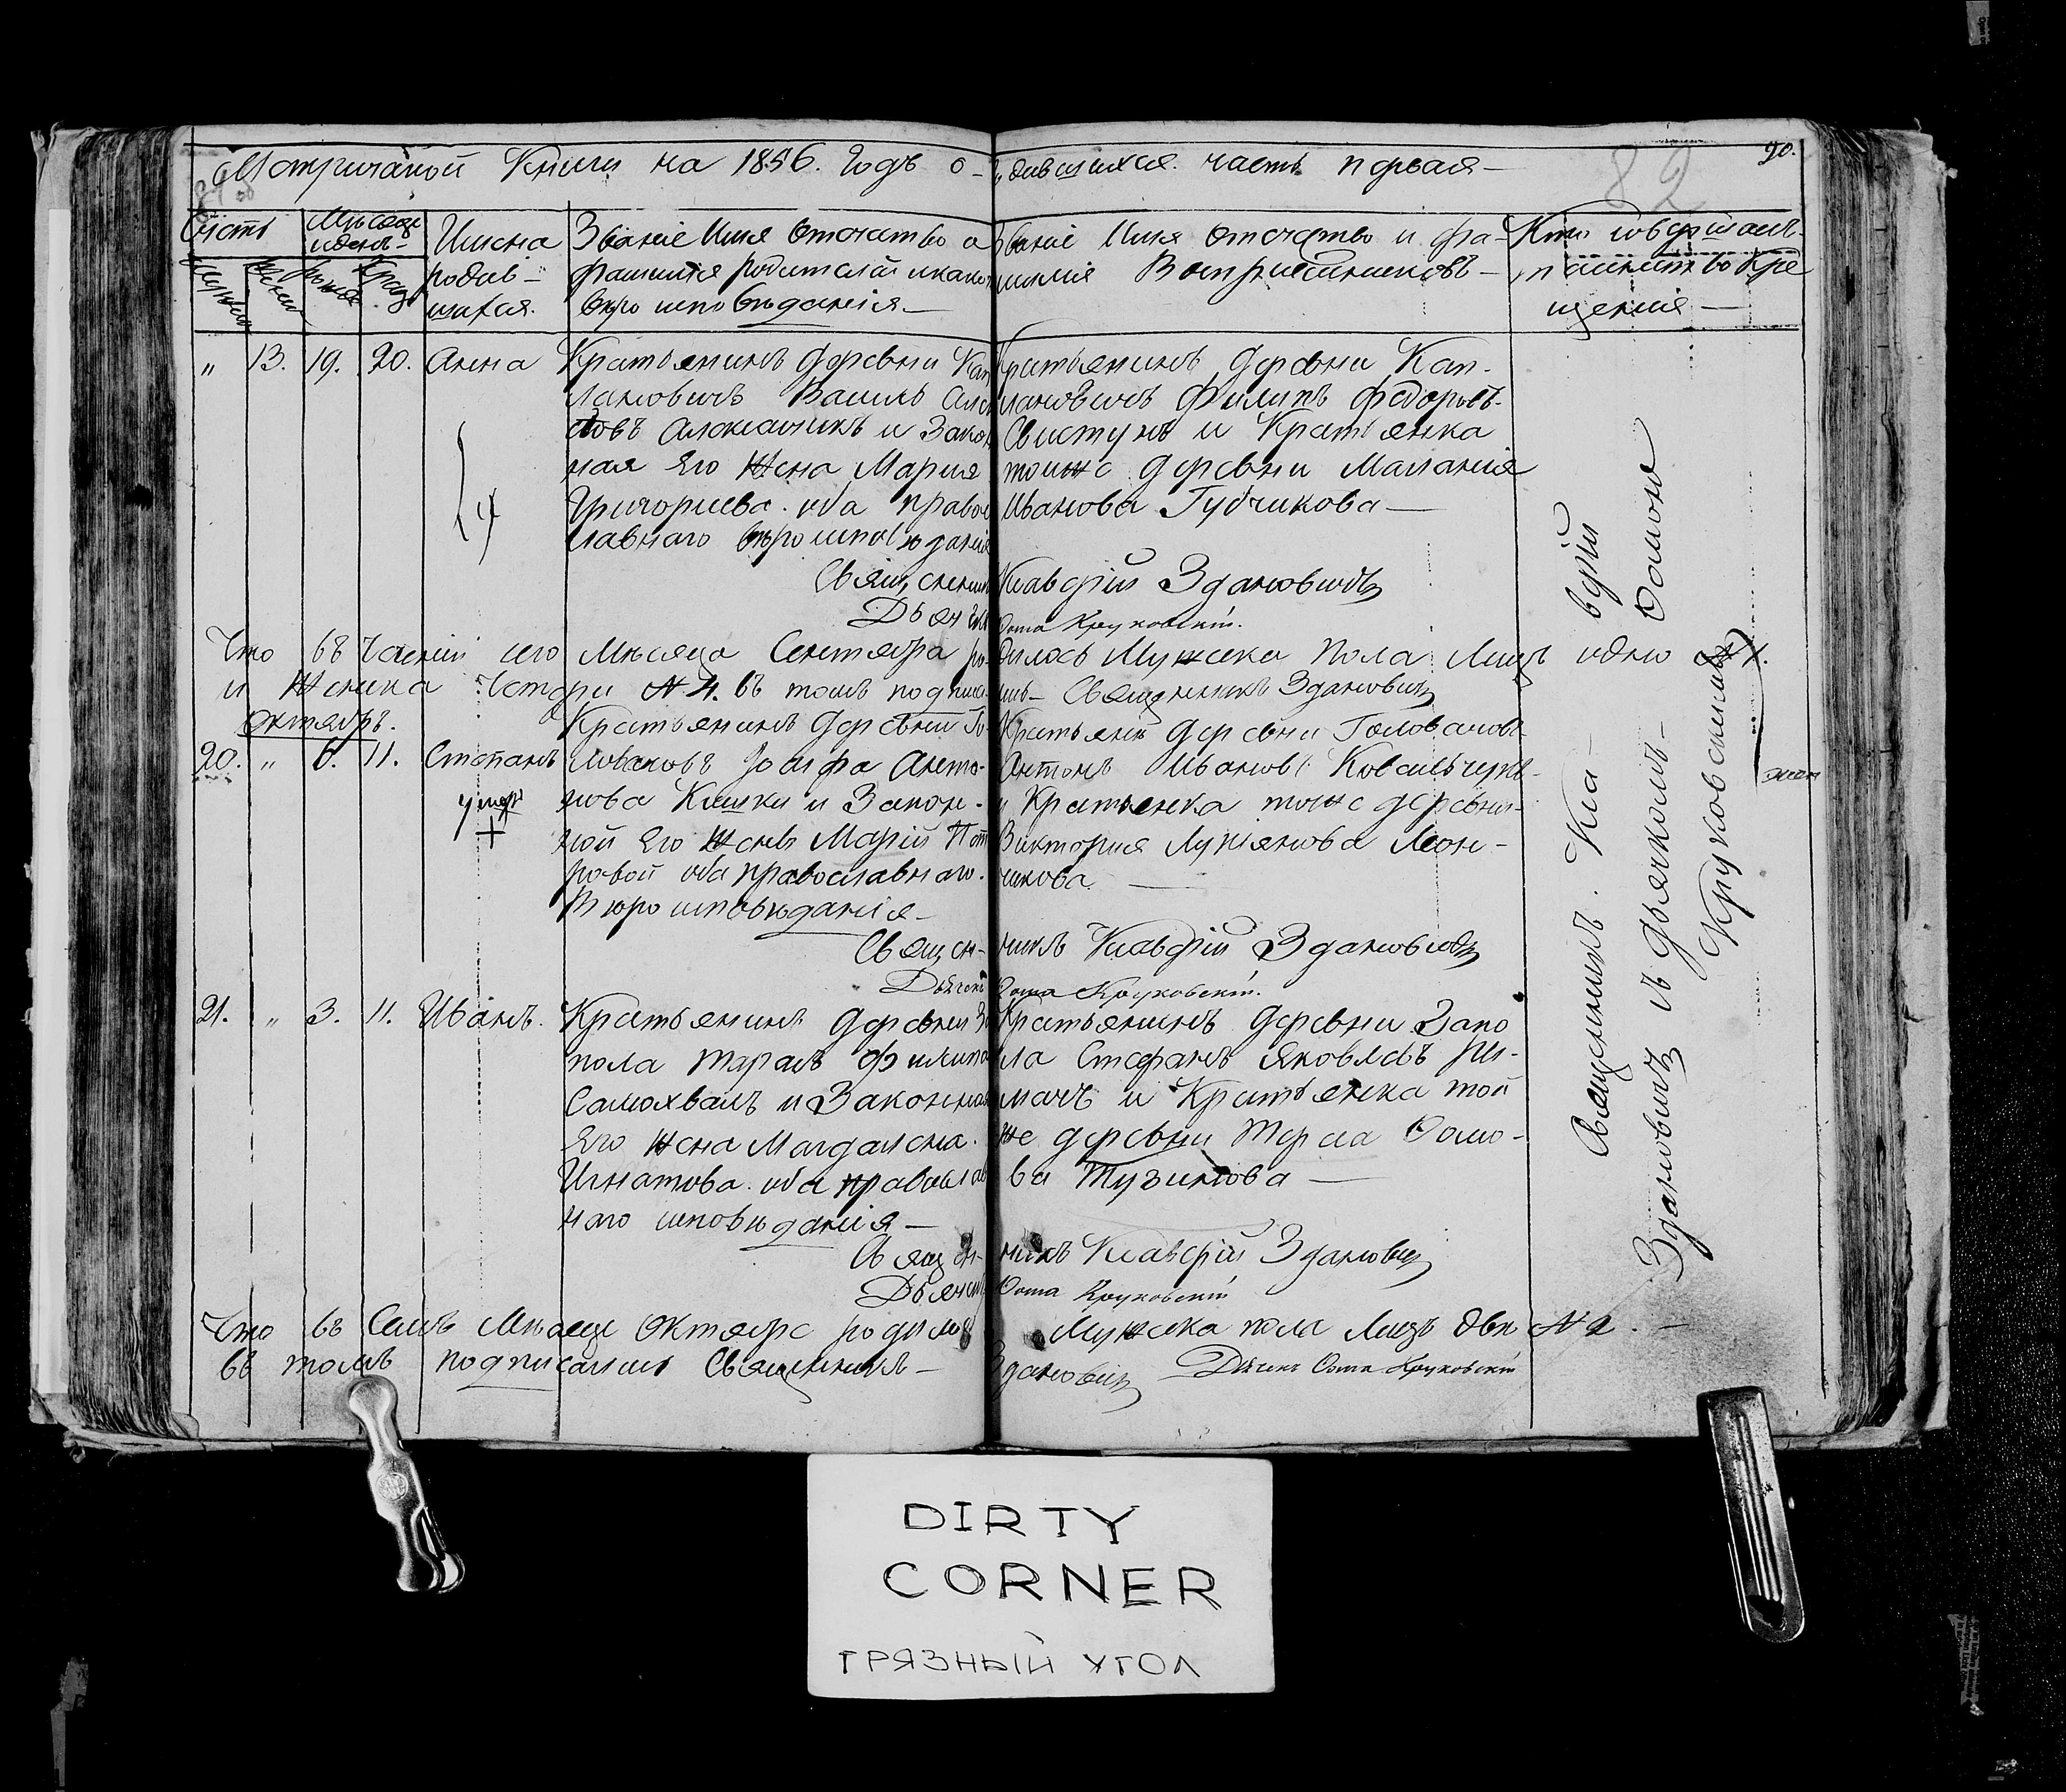 Метричаной Книги на 1856. Годъ о родившихся. часть первая —
90.
82
Счетъ
Мѣсяцъ и день
Имена родив-
шихся.
Званіе Имя Отечество и
фамилія родителей и како
вѣроисповѣданія —
Званіе Имя Отечество и фа-
милія Воспріемниковъ —
Кто совершалъ
таинство кре
щенія —
" 13. 19. 20. Анна
Крестьянинъ деревни Кап
лановичъ Василь
Алексанчикъ и Закон
ная Его Жена Мария
Григориева. оба правос
лавнаго вѣроисповѣданія
Крестьянинъ деревни Кап-
лановичъ Филипъ Федоровъ-
Свистунъ и Крестьянка
тойже деревни Маланія
Иванова Губчикова —
Священникъ Клавдій Здановичъ
Дьячекъ Фома Круковскій.
Что въ теченіи сего Мѣсяца Сентября родилось Мужеска Пола Лицъ одно № 1.
и Женска Четыри № 4. въ томъ подписались Священникъ Здановичъ
Октябрь.
20. " 6. 11. Степанъ
умеръ
+
Крестьянинъ деревни Го
ловачовъ Іосифа Анто-
нова Кишки и Закон-
ной Его Жены Маріи Пет
ровой оба православнаго.
Вѣроисповѣданія —
Крестьянинъ деревни Головачовъ
Антонъ Ивановъ Ковальчукъ-
и Крестьянка тойже деревни-
Виктория Лукянова Леон-
чикова —
Священникъ Клавдій Здановичъ
Дьячекъ Фома Круковскій.
21. " 3. 11. Иванъ.
Крестьянинъ деревни За
пола Тарасъ Филипо
Самохвалъ и Законная
Его Жена Магдалена.
Игнатова. оба православ
наго исповѣданія —
Крестьянинъ деревни Запо
ла Стефанъ Яковлевъ
и Крестьянка той
же деревни Фомо-
ва Тузикова —
Священникъ Клавдій Здановичъ
Дьячекъ Фома Круковскій
Что въ Семъ Мѣсяце Октябре родилось Мужска пола Лицъ двѣ № 2. —
въ томъ подписались Священникъ — Здановичъ Дьячекъ Фома Круковскій
Священникъ. Кла- вдій
Здановичъ съ дьячкомъ — Фомою
Круковскимъ
DIRTY
CORNER
ГРЯЗНЫЙ УГОЛ